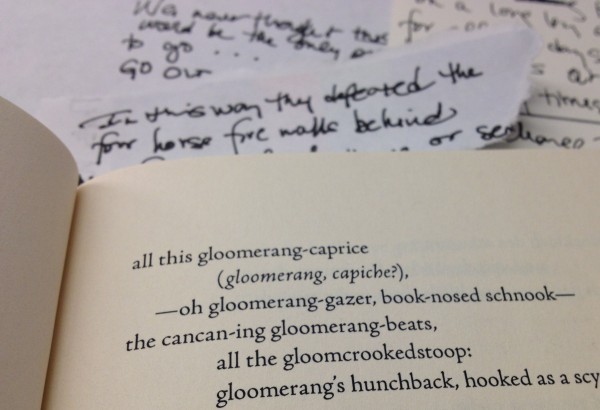 We never thought this
would be the only
to go . . .
GO OUT
a love
for - on
days
times
In this way they defeated the
four horse fire walls behind
or sentences
all this gloomerang-caprice
(gloomerang, capiche?),
—oh gloomerang-gazer, book-nosed schnook—
the cancan-ing gloomerang-beats,
all the gloomcrookedstoop:
gloomerang's hunchback, hooked as a scy